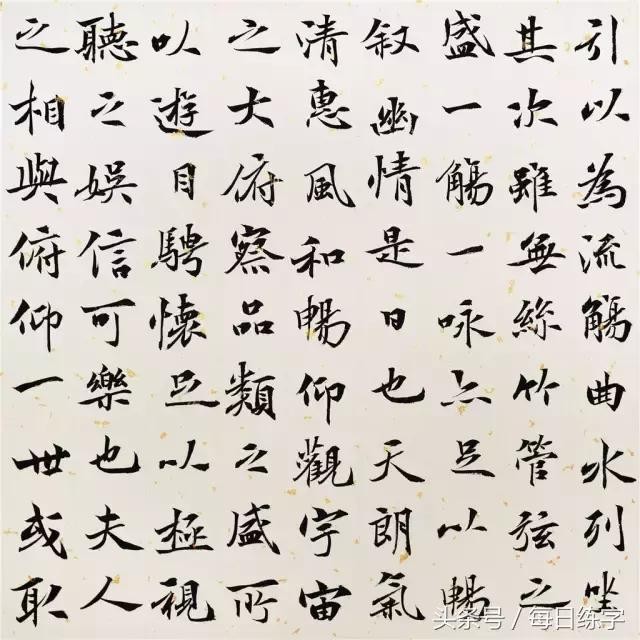 引以為流觴曲水列坐
其次雖無絲竹管弦之
盛一觴一咏亦足以暢
叙幽情是日也天朗氣
清惠風和暢仰觀宇宙
之大俯察品類之盛所
以遊目騁懷足以極視
聽之娛信可樂也夫人
之相與俯仰一世或取
头条号 / 每日练字